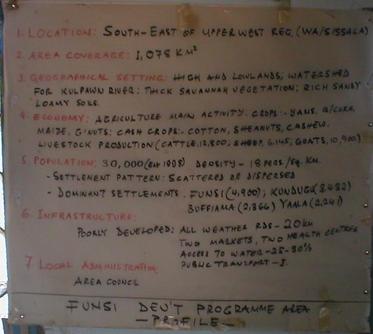 1. LOCATION: SOUTH-EAST OF UPPER WEST REG. (WA/SISSALA)
2. AREA COVERAGE: 1,078 KM²
3. GEOGRAPHICAL SETTING: HIGH AND LOWLANDS; WATERSHED
FOR KULPAWN RIVER: THICK SAVANNAH VEGETATION; RICH SANDY
LOAMY SOILS.
4. ECONOMY: AGRICULTURE MAIN ACTIVITY. CROPS:- YAMS, G/CORN,
MAIZE, G'NUTS: CASH CROPS:- COTTON, SHEANUTS, CASHEW.
LIVESTOCK PRODUCTION (CATTLE, 12,800; SHEEP, 6,145; GOATS, 10,900)
5. POPULATION: 30,000 (EST 1998) DENSITY - 18 PERS/SQ. KM.
- SETTLEMENT PATTERN: SCATTERED OR DISPERSED
- DOMINANT SETTLEMENTS. FUNSI (4,900), KUNDUGU
BUFFIAMA (2,366) YAALA (2,241)
6. INFRASTRUCTURE:
POORLY DEVELOPED: ALL WEATHER RDS - 20 KM
TWO MARKETS, TWO HEALTH CENTRES
ACCESS TO WATER - 25-30%
PUBLIC TRANSPORT - 1.
7. LOCAL ADMINISTRATION
AREA COUNCIL
FUNSI DEV'T PROGRAMME AREA
- PROFILE -